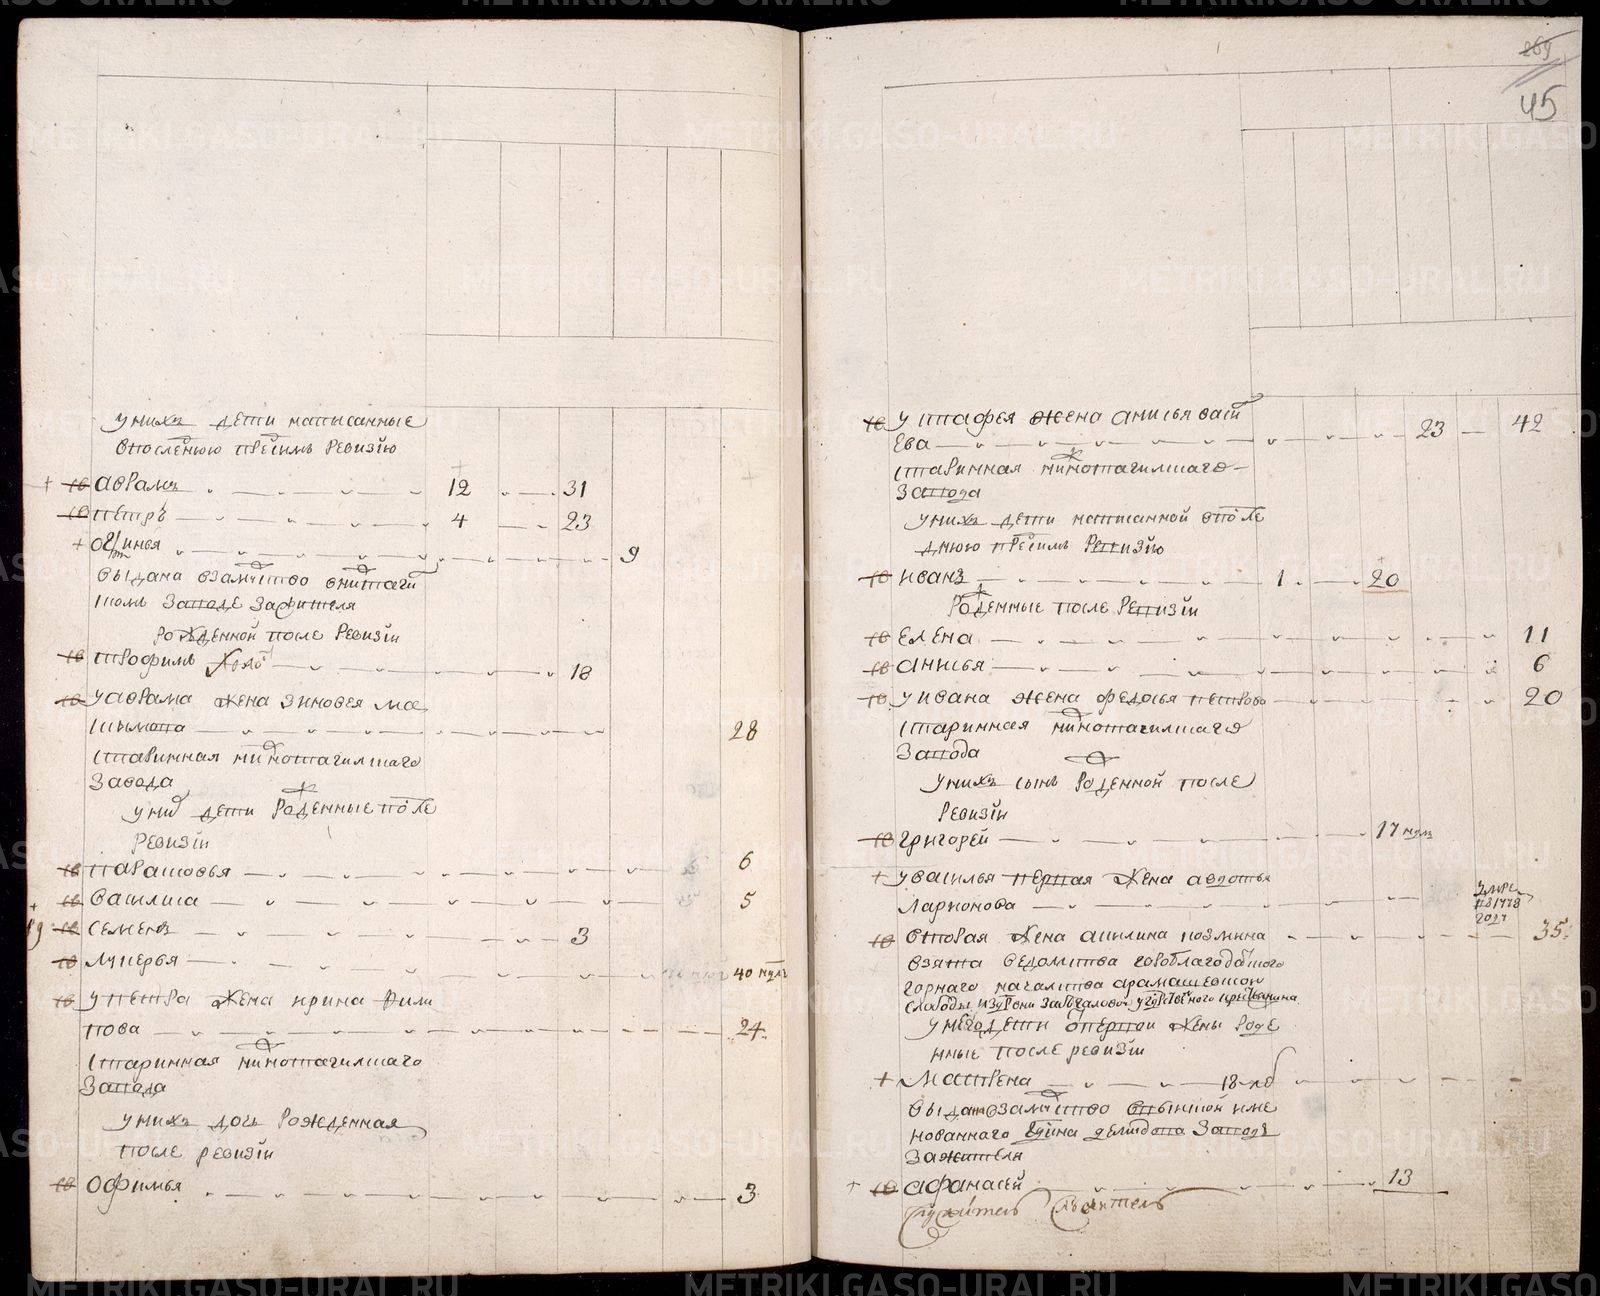 у нихъ дети написанные
впоследнюю пред симъ ревизiю
Аврамъ 12 31
Петръ 4 23
Огринея 9
выдана взамужство внижнетаги
скомъ заводе за жителя
рожденной после ревизiи
трофимъ холо 18
у Аврама жена зиновея ма
28
старинная нижнотагилскаго
завода
у них дети рожденные после
ревизiи
парасковья 6
василиса 5
семенъ 3
лукерья 40
у петра жена ирина фили
пова 24
старинная нижнотагилскаго
завода
у нихъ дочь рожденная
после ревизiи
офимья 3
269
45
у стафея жена анисья васи
ева 23 42
старинная нижнотагилскаго
завода
у нихъ дети написанной впосле
днюю пред симъ ревизiю
иванъ 1 20
рожденные после ревизiи
елена 11
анисья 6
у ивана жена федосья петрова 20
старинная нижнотагилскаго
завода
у нихъ сынъ рожденной после
ревизiи
григорей 17
у василья первая жена авдотья
ларионова
вторая жена акилина козмина 35
взята ведомства гороблагодатского
горнаго началства арамашевской
слободы
у него дети от первой жены рожде
нные после ревизiи
матрена 18
выдана взамужство впомянутой име
нованнаго демидова заводъ
за жителя
афанасей 13
служитель